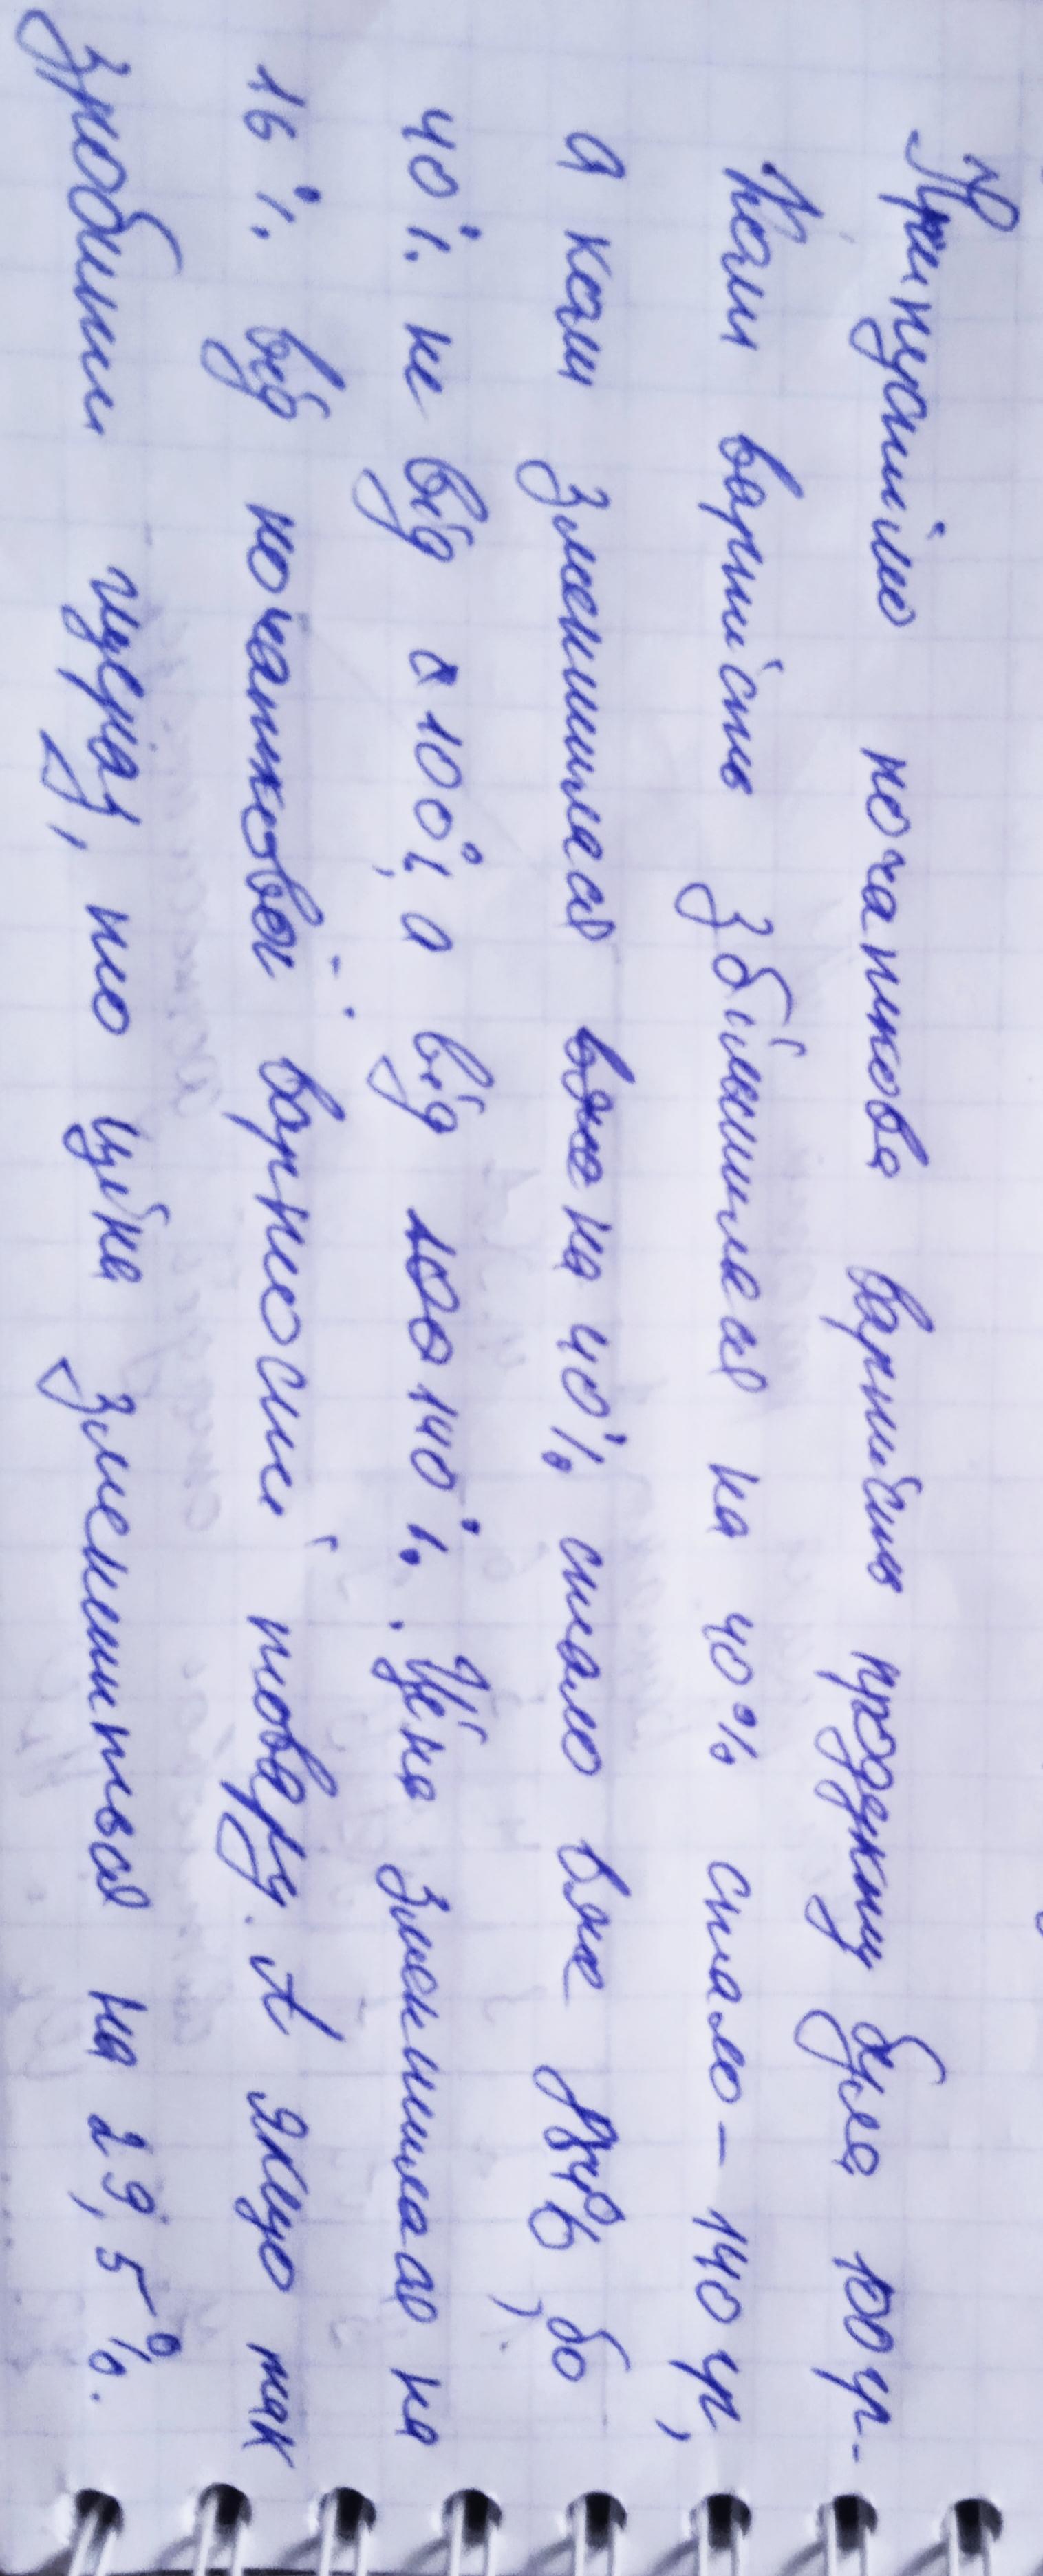 Припустімо початкова вартість продукту була 100 гр.
Коли вартість збільшилась на 40% стало - 140 гр,
а коли зменшилась вже на 40% стало вже 84, бо
40% не від 100%, а від 140%. Ціна зменшилась на
16% від початкової вартості товару. А якщо так
зробити щераз, то ціна зменшиться на 29,5%.